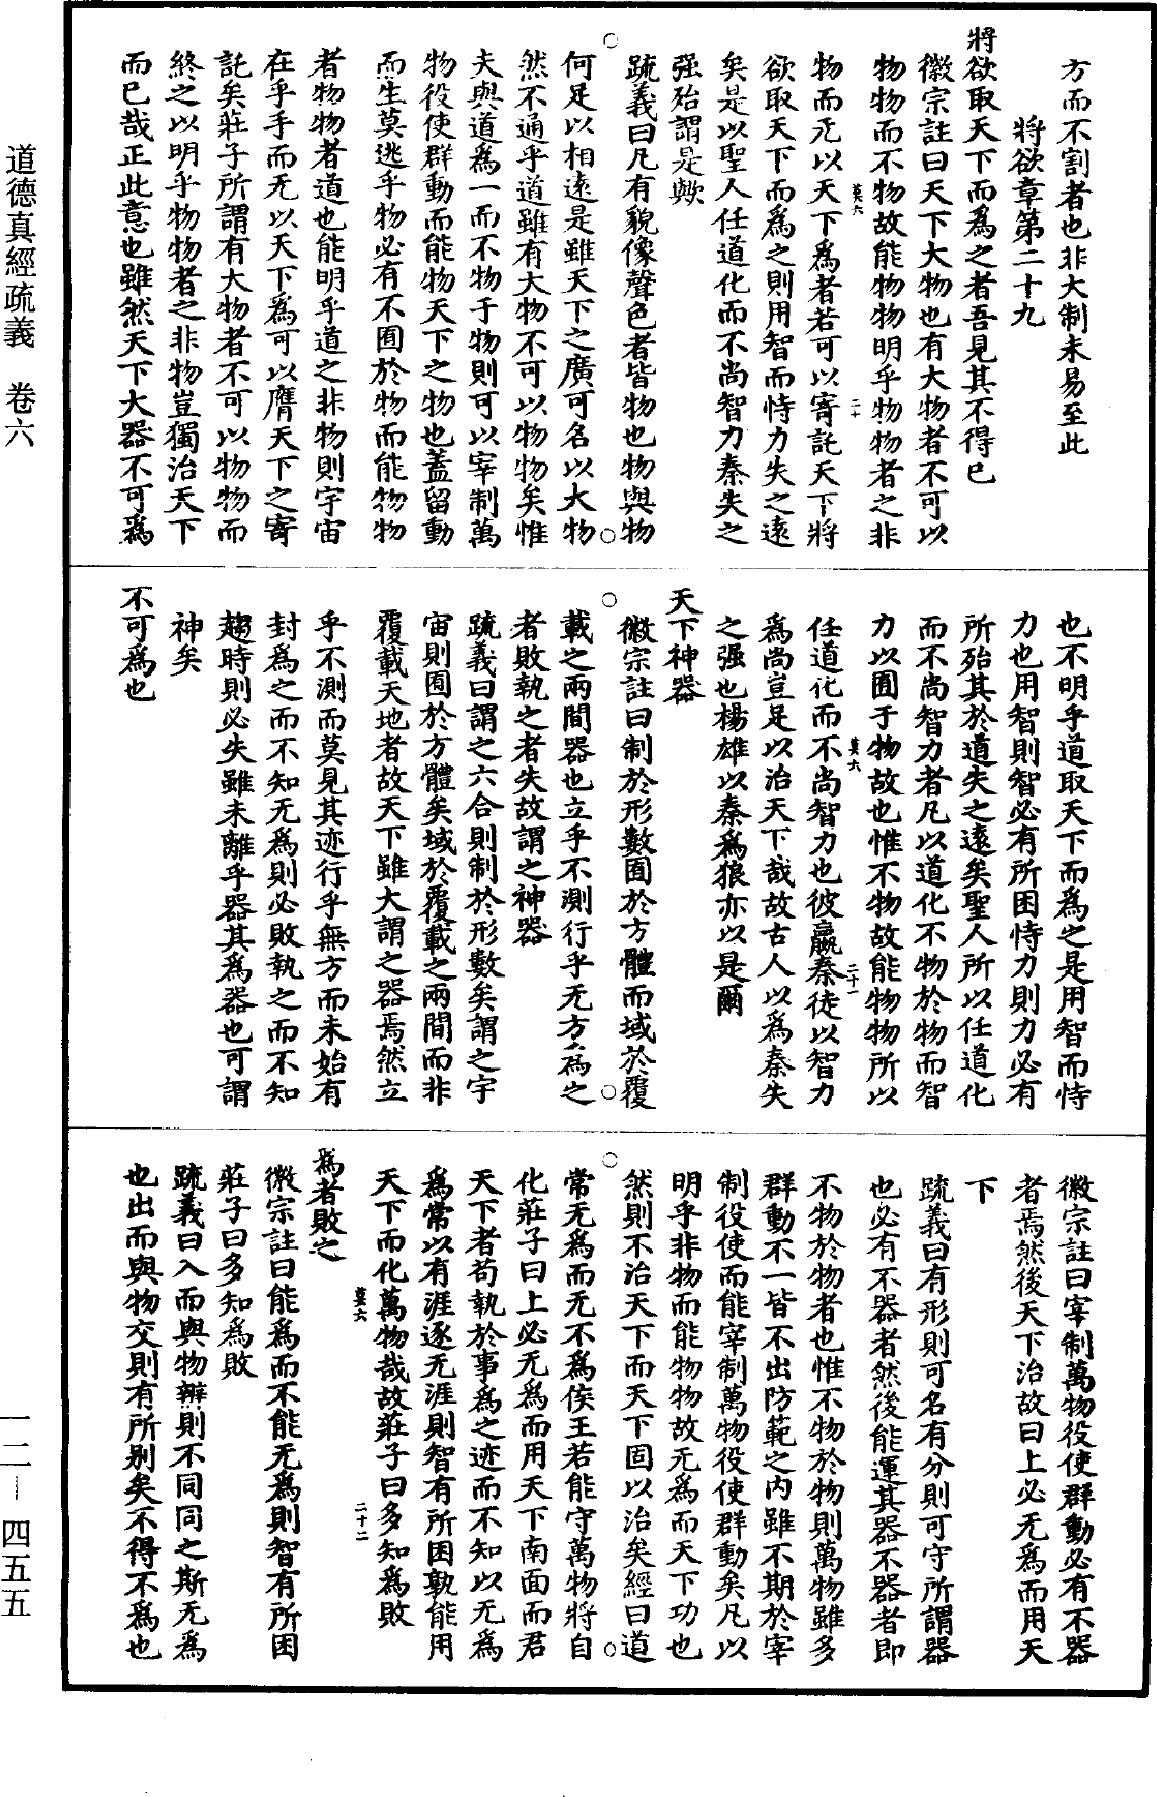 方而不割者也非大制未易至此
將欲章第二十九
將欲取天下而爲之者吾見其不得已
徽宗註曰天下大物也有大物者不可以
物物而不物故能物物明乎物物者之非
莫六
二十
物而无以天下爲者若可以寄託天下將
欲取天下而爲之則用智而恃力失之遠
矣是以聖人任道化而不尚智力秦失之
强殆謂是歟
疏義曰凡有貌像聲色者皆物也物與物
何足以相遠是雖天下之廣可名以大物
然不通乎道雖有大物不可以物物矣惟
夫與道爲一而不物于物則可以宰制萬
物役使群動而能物天下之物也蓋留動
而生莫逃乎物必有不囿於物而能物物
者物物者道也能明乎道之非物則宇宙
在乎手而无以天下爲可以膺天下之寄
託矣莊子所謂有大物者不可以物物而
終之以明乎物物者之非物豈獨治天下
而已哉正此意也雖然天下大器不可爲
也不明乎道取天下而爲之是用智而恃
力也用智則智必有所困恃力則力必有
所殆其於道失之遠矣聖人所以任道化
而不尚智力者凡以道化不物於物而智
力以囿于物故也惟不物故能物物所以
莫六
二十一
任道化而不尚智力也彼嬴秦徒以智力
爲尚豈足以治天下哉故古人以爲秦失
之强也楊雄以秦爲狼亦以是爾
天下神器
徽宗註曰制於形數囿於方體而域於覆
載之兩間器也立乎不測行乎无方爲之
者敗執之者失故謂之神器
疏義曰謂之六合則制於形數矣謂之宇
宙則囿於方體矣域於覆載之兩間而非
覆載天地者故天下雖大謂之器焉然立
乎不測而莫見其迹行乎無方而未始有
封爲之而不知无爲則必敗執之而不知
趨時則必失雖未離乎器其爲器也可謂
神矣
不可爲也
徽宗註曰宰制萬物役使群動必有不器
者焉然後天下治故曰上必无爲而用天
下
疏義曰有形則可名有分則可守所謂器
也必有不器者然後能運其器不器者即
不物於物者也惟不物於物則萬物雖多
群動不一皆不出防範之內雖不期於宰
制役使而能宰制萬物役使群動矣凡以
明乎非物而能物物故无爲而天下功也
然則不治天下而天下固以治矣經曰道
常无爲而无不爲侯王若能守萬物將自
化莊子曰上必无爲而用天下南面而君
天下者苟執於事爲之迹而不知以无爲
爲常以有涯逐无涯則智有所困孰能用
天下而化萬物哉故莊子曰多知爲敗
莫六
二十二
爲者敗之
徽宗註曰能爲而不能无爲則智有所困
莊子曰多知爲敗
疏義曰入而與物辨則不同同之斯无爲
也出而與物交則有所别矣不得不爲也
道德真經疏義　卷六
一二—四五五